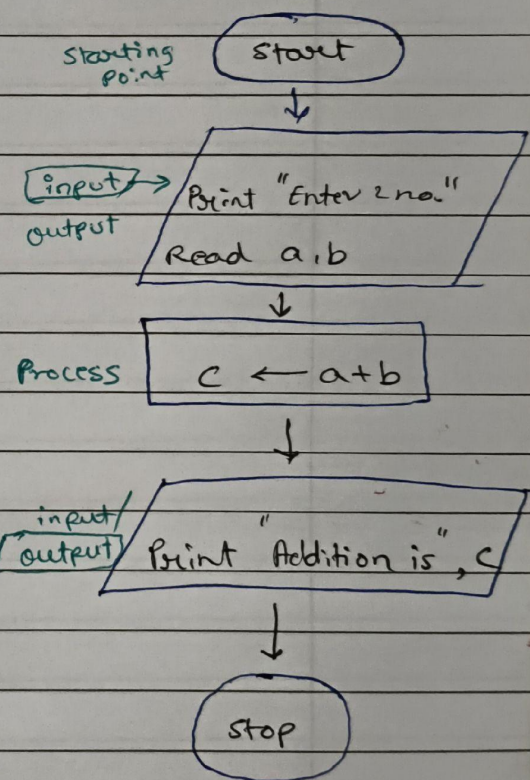 starting
point
start
input
output
Print "Enter 2 no."
Read a, b
Process
c ← a+b
input/
output
Print "Addition is", c
stop